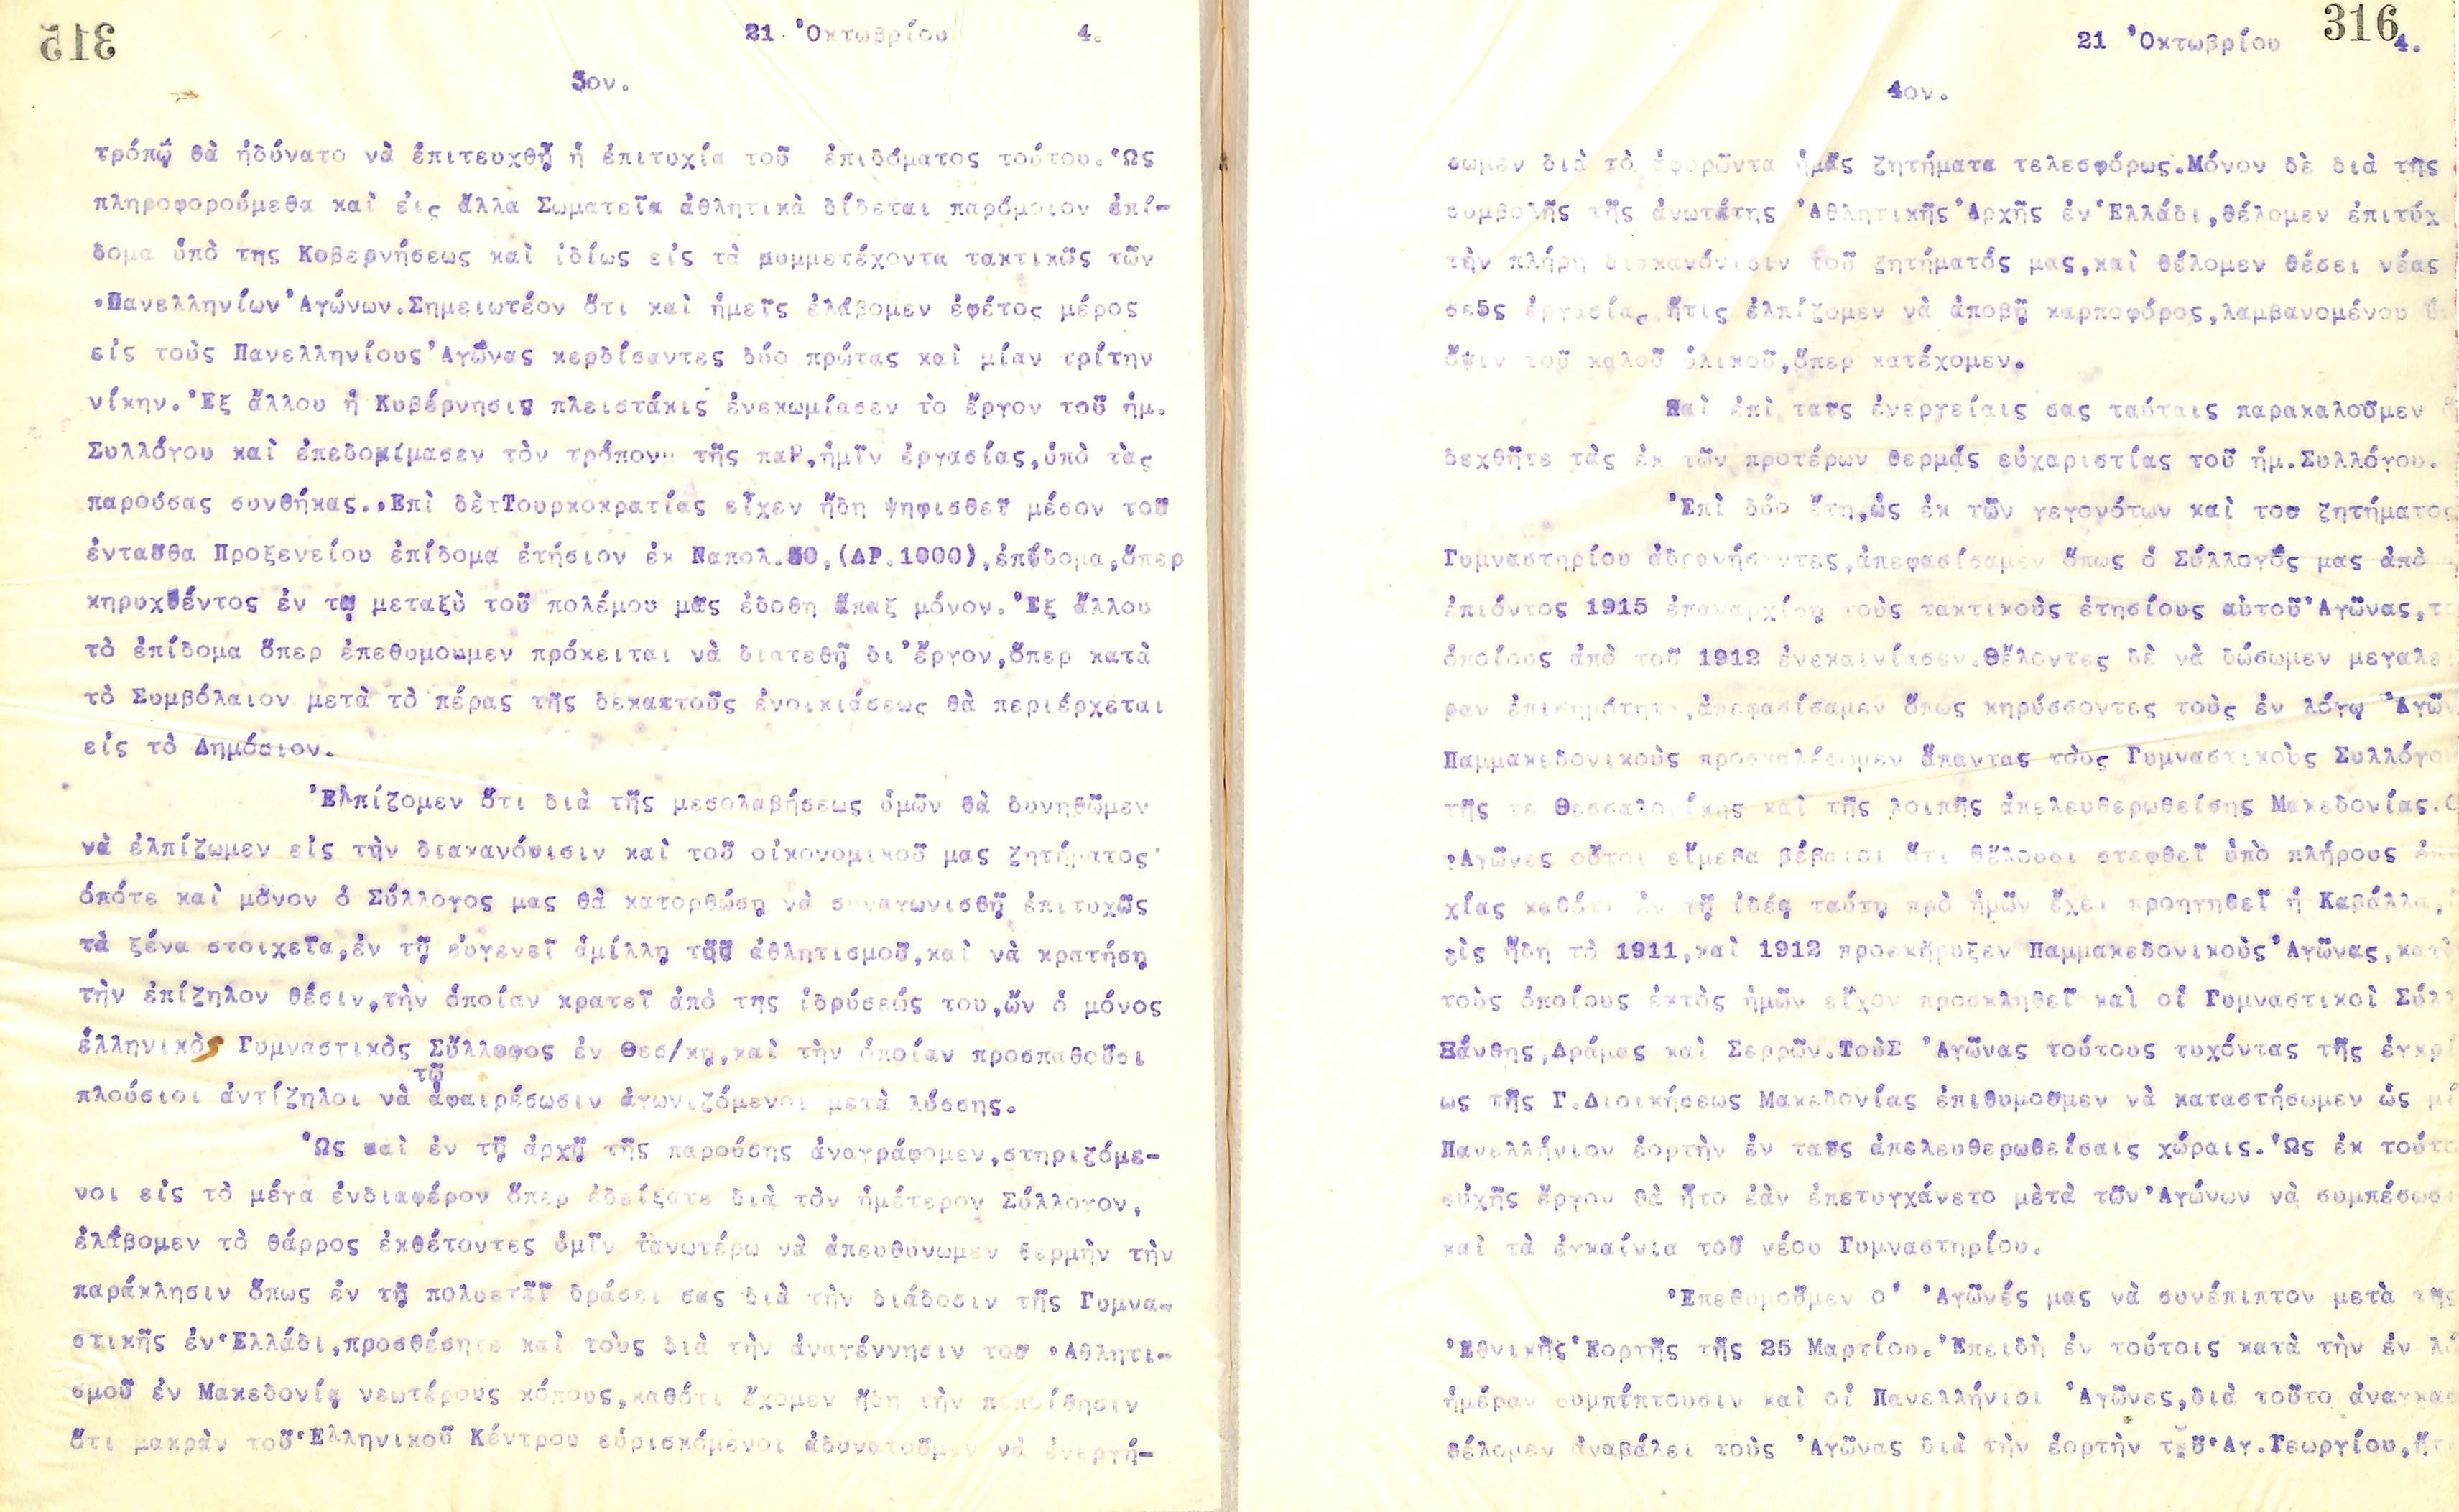 315
21 Ὀκτωβρίου 4.
3ον.
τρόπῳ θὰ ἠδύνατο νὰ ἐπιτευχθῇ ἡ ἐπιτυχία τοῦ ἐπιδόματος τούτου. Ὡς
πληροφορούμεθα καὶ εἰς ἄλλα Σωματεῖα ἀθλητικὰ δίδεται παρόμοιον ἐπί-
δομα ὑπὸ της Κυβερνήσεως καὶ ἰδίως εἰς τὰ συμμετέχοντα τακτικῶς τῶν
Πανελληνίων Ἀγώνων. Σημειωτέον ὅτι καὶ ἡμεῖς ἐλάβομεν ἐφέτος μέρος
εἰς τοὺς Πανελληνίους Ἀγῶνας κερδίσαντες δύο πρώτας καὶ μίαν τρίτην
νίκην. Ἐξ ἄλλου ἡ Κυβέρνησις πλειστάκις ἐνεκωμίασεν τὸ ἔργον τοῦ ἡμ.
Συλλόγου καὶ ἐπεδοκίμασεν τὸν τρόπον τῆς παρ, ἡμῖν ἐργασίας, ὑπὸ τὰς
παρούσας συνθήκας. Ἐπὶ δὲ Τουρκοκρατίας εἶχεν ἤδη ψηφισθεῖ μέσον τοῦ
ἐνταῦθα Προξενείου ἐπίδομα ἐτήσιον ἐκ Ναπολ. 50, (ΔΡ. 1000), ἐπίδομα, ὅπερ
κηρυχθέντος ἐν τῳ μεταξὺ τοῦ πολέμου μᾶς ἐδοθη ἅπαξ μόνον. Ἐξ ἄλλου
τὸ ἐπίδομα ὅπερ ἐπεθυμουμεν πρόκειται νὰ διατεθῇ δι' ἔργον, ὅπερ κατὰ
τὸ Συμβόλαιον μετὰ τὸ πέρας τῆς δεκαετοῦς ἐνοικιάσεως θὰ περιέρχεται
εἰς τὸ Δημόσιον.
Ἐλπίζομεν ὅτι διὰ τῆς μεσολαβήσεως ὑμῶν θὰ δυνηθῶμεν
νὰ ἐλπίζωμεν εἰς τὴν διακανόνισιν καὶ τοῦ οἰκονομικοῦ μας ζητήματος
ὁπότε καὶ μόνον ὁ Σύλλογος μας θὰ κατορθώσῃ νὰ συναγωνισθῇ ἐπιτυχῶς
τὰ ξένα στοιχεῖα, ἐν τῇ εὐγενεῖ ἁμίλλῃ τοῦ ἀθλητισμοῦ, καὶ νὰ κρατήσῃ
τὴν ἐπίζηλον θέσιν, τὴν ὁποίαν κρατεῖ ἀπὸ της ἱδρύσεώς του, ὢν ὁ μόνος
ἑλληνικὸς Γυμναστικὸς Σύλλογος ἐν Θεσ/κῃ, καὶ τὴν ὁποίαν προσπαθοῦσι
πλούσιοι ἀντίζηλοι νὰ τῷ ἀφαιρέσωσιν ἀγωνιζόμενοι μετὰ λύσσης.
Ὡς καὶ ἐν τῇ ἀρχῇ τῆς παρούσης ἀναγράφομεν, στηριζόμε-
νοι εἰς τὸ μέγα ἐνδιαφέρον ὅπερ ἐδείξατε διὰ τὸν ἡμέτερον Σύλλογον,
ἐλάβομεν τὸ θάρρος ἐκθέτοντες ὑμῖν τἀνωτέρω νὰ ἀπευθύνωμεν θερμὴν τὴν
παράκλησιν ὅπως ἐν τῇ πολυετεῖ δράσει σας διὰ τὴν διάδοσιν τῆς Γυμνα-
στικῆς ἐν Ἑλλάδι, προσθέσητε καὶ τοὺς διὰ τὴν ἀναγέννησιν τοῦ Ἀθλητι-
σμοῦ ἐν Μακεδονίᾳ νεωτέρους κόπους, καθότι ἔχομεν ἤδη τὴν πεποίθησιν
ὅτι μακρὰν τοῦ Ἑλληνικοῦ Κέντρου εὑρισκόμενοι ἀδυνατοῦμεν νὰ ἐνεργή-
316
21 Ὀκτωβρίου 4.
4ον.
σωμεν διὰ τὸ ἀφορῶντα ἡμᾶς ζητήματα τελεσφόρως. Μόνον δὲ διὰ τῆς
συμβολῆς τῆς ἀνωτάτης Ἀθλητικῆς Ἀρχῆς ἐν Ἑλλάδι, θέλομεν ἐπιτύχε
τὴν πλήρη διακανόνισιν τοῦ ζητήματός μας, καὶ θέλομεν θέσει νέας
σε5ς ἐργασίας ἥτις ἐλπίζομεν νὰ ἀποβῇ καρποφόρος, λαμβανομένου
ὄψιν τοῦ καλοῦ ὑλικοῦ, ὅπερ κατέχομεν.
Καὶ ἐπὶ ταῖς ἐνεργείαις σας ταύταις παρακαλοῦμεν
δεχθῆτε τὰς ἐκ τῶν προτέρων θερμάς εὐχαριστίας τοῦ ἡμ. Συλλόγου.
Ἐπὶ δύο ἔτη, ὡς ἐκ τῶν γεγονότων καὶ του ζητήματος
Γυμναστηρίου ἀδρανήσαντες, ἀπεφασίσαμεν ὅπως ὁ Σύλλογός μας ἀπὸ
ἐπιόντος 1915 ἐπαναρχίσῃ τοὺς τακτικοὺς ἐτησίους αὐτοῦ Ἀγῶνας, το
ὁποίους ἀπὸ τοῦ 1912 ἐνεκαινίασεν. Θέλοντες δὲ νὰ δώσωμεν μεγαλε
ραν ἐπισημότητα, ἀπεφασίσαμεν ὅπως κηρύσσοντες τοὺς ἐν λόγῳ Ἀγῶν
Παμμακεδονικοὺς προσκαλέσωμεν ἅπαντας τοὺς Γυμναστικοὺς Συλλόγο
τῆς τε Θεσσαλονίκης καὶ τῆς λοιπῆς ἀπελευθερωθείσης Μακεδονίας.
Ἀγῶνες οὗτοι εἴμεθα βέβαιοι ὅτι θέλουσι στεφθεῖ ὑπὸ πλήρους
χίας καθότι ἐν τῇ ἰδέᾳ ταύτῃ πρὸ ἡμῶν ἔχει προηγηθεῖ ἡ Καβάλλα,
ἤδη τὸ 1911, καὶ 1912 προεκήρυξεν Παμμακεδονικοὺς Ἀγῶνας, κατ
τοὺς ὁποίους ἐκτὸς ἡμῶν εἶχον προσκληθεῖ καὶ οἱ Γυμναστικοὶ Σύλλ
Ξάνθης, Δράμας καὶ Σερρῶν. ΤοὺΣ Ἀγῶνας τούτους τυχόντας τῆς ἐγκρί
ως τῆς Γ. Διοικήσεως Μακεδονίας ἐπιθυμοῦμεν νὰ καταστήσωμεν ὡς μί
Πανελλήνιον ἑορτὴν ἐν ταῖς ἀπελευθερωθείσαις χώραις. Ὡς ἐκ τούτο
εὐχῆς ἔργον θὰ ἦτο ἐὰν ἐπετυγχάνετο μὲτὰ τῶν Ἀγώνων νὰ συμπέσωσ
καὶ τὰ ἐγκαίνια τοῦ νέου Γυμναστηρίου.
Ἐπεθυμοῦμεν ο' Ἀγῶνές μας νὰ συνέπιπτον μετὰ τῆς
Ἐθνικῆς Ἑορτῆς τῆς 25 Μαρτίου. Ἐπειδὴ ἐν τούτοις κατὰ τὴν ἐν λό
ἡμέραν συμπίπτουσιν καὶ οἱ Πανελλήνιοι Ἀγῶνες, διὰ τοῦτο ἀναγκασ
θέλομεν ἀναβάλει τοὺς Ἀγῶνας διὰ τὴν ἑορτὴν τοῦ Ἁγ. Γεωργίου, ἥτ